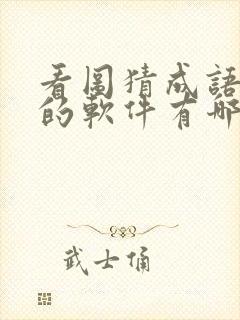 看图猜成語
的軟件有哪
武士俑